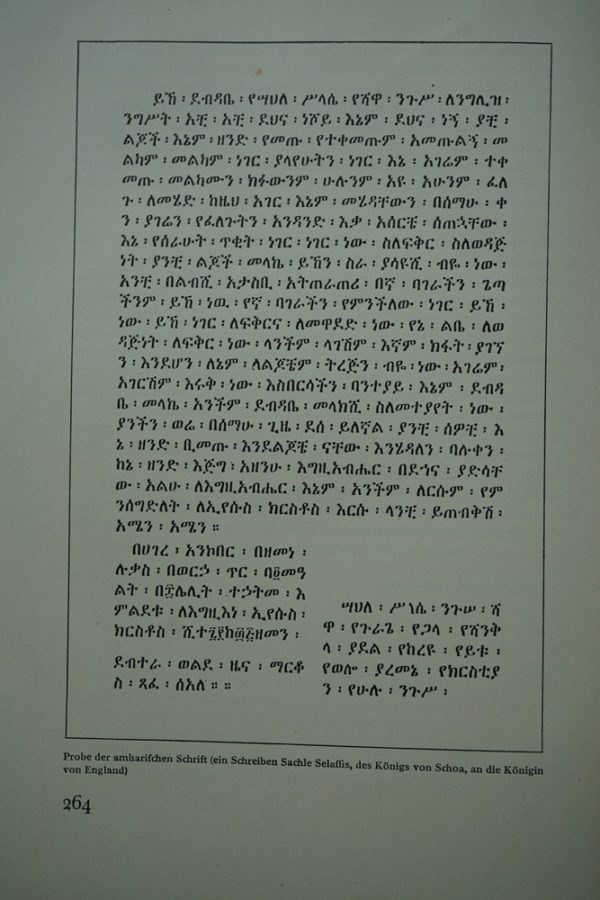 ይኸ ፡ ደብዳቤ ፡ የሣህለ ፡ ሥላሴ ፡ የሸዋ ፡ ንጉሥ ፡ ለንግሊዝ ፡
ንግሥት ፡ አቺ ፡ አቺ ፡ ደህና ፡ ነሾይ ፡ እኔም ፡ ደህና ፡ ነኝ ፡ ያቺ ፡
ልጆች ፡ እኔም ፡ ዘንድ ፡ የመጡ ፡ የተቀመጡም ፡ አመጡልኝ ፡ መ
ልካም ፡ መልካም ፡ ነገር ፡ ያላየሁትን ፡ ነገር ፡ እኔ ፡ አገሬም ፡ ተቀ
መጡ ፡ መልካሙን ፡ ክፋውንም ፡ ሁሉንም ፡ አዩ ፡ አሁንም ፡ ፈለ
ጉ ፡ ለመሄድ ፡ ከዚህ ፡ አገር ፡ እኔም ፡ መሄዳቸውን ፡ በሰማሁ ፡ ቀ
ን ፡ ያገሬን ፡ የፈለጉትን ፡ አንዳንድ ፡ እቃ ፡ አሰርቼ ፡ ሰጠኋቸው ፡
እኔ ፡ የሰራሁት ፡ ጥቂት ፡ ነገር ፡ ነገር ፡ ነው ፡ ስለፍቅር ፡ ስለወዳጅ
ነት ፡ ያንቺ ፡ ልጆች ፡ መላኬ ፡ ይኸን ፡ ስራ ፡ ያሳዩሺ ፡ ብዬ ፡ ነው ፡
አንቺ ፡ በልብሺ ፡ አታስቢ ፡ አትጠራጠሪ ፡ በኛ ፡ ባገራችን ፡ ጌጣ
ችንም ፡ ይኸ ፡ ነዉ ፡ የኛ ፡ ባገራችን ፡ የምንችለው ፡ ነገር ፡ ይኸ ፡
ነው ፡ ይኸ ፡ ነገር ፡ ለፍቅርና ፡ ለመዋደድ ፡ ነው ፡ የኔ ፡ ልቤ ፡ ለወ
ዳጅነት ፡ ለፍቅር ፡ ነው ፡ ላንችም ፡ ላገሽም ፡ እኛም ፡ ክፋት ፡ ያገኘ
ን ፡ እንደሆን ፡ ለኔም ፡ ለልጆቼም ፡ ትረጅን ፡ ብዬ ፡ ነው ፡ አገሬም ፡
አገርሽም ፡ እሩቅ ፡ ነው ፡ እስበርሳችን ፡ ባንተያይ ፡ እኔም ፡ ደብዳ
ቤ ፡ መላኬ ፡ አንችም ፡ ደብዳቤ ፡ መላክሺ ፡ ስለመተያየት ፡ ነው ፡
ያንችን ፡ ወሬ ፡ በሰማሁ ፡ ጊዜ ፡ ደስ ፡ ይለኛል ፡ ያንቺ ፡ ሰዎቺ ፡ እ
ኔ ፡ ዘንድ ፡ ቢመጡ ፡ እንደልጆቼ ፡ ናቸው ፡ እንሄዳለን ፡ ባሉቀን ፡
ከኔ ፡ ዘንድ ፡ እጅግ ፡ አዘንሁ ፡ እግዚአብሔር ፡ በደኅና ፡ ያድሳቸ
ው ፡ አልሁ ፡ ለእግዚአብሔር ፡ እኔም ፡ አንችም ፡ ለርሱም ፡ የም
ንሰግድለት ፡ ለኢየሱስ ፡ ክርስቶስ ፡ እርሱ ፡ ላንቺ ፡ ይጠብቅሽ ፡
አሜን ፡ አሜን ።
በሀገረ ፡ አንኮበር ፡ በዘመነ ፡
ሉቃስ ፡ በወርኃ ፡ ጥር ፡
ልት ፡ ተኃትመ ፡ እ
ምልደቱ ፡ ለእግዚእነ ፡ ኢየሱስ ፡
ክርስቶስ ፡
ደብተራ ፡ ወልደ ፡ ዜና ፡ ማርቆ
ስ ፡ ጸፈ ፡ ሰአለ ። ።
ሣህለ ፡ ንጉሠ ፡ ሻ
ዋ ፡ የጉራጌ ፡ የጋላ ፡ የሻንቅ
ላ ፡ ያደል ፡ የከረዩ ፡ የይቱ ፡
የወሎ ፡ ያረመኔ ፡ የክርስቲያ
ን ፡ የሁሉ ፡ ንጉሥ ፡
Probe der amharifchen Schrift (ein Schreiben Sachle Selaffis, des Königs von Schoa, an die Königin
von England)
264